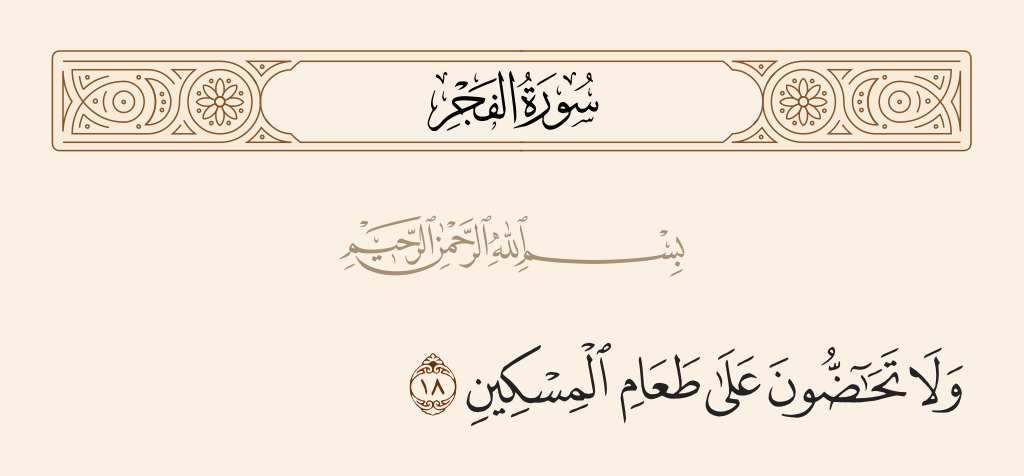 سُورَةُ الفَجْرِ
بِسْمِ ٱللَّهِ ٱلرَّحْمَٰنِ ٱلرَّحِيمِ
وَلَا تَحَٰٓضُّونَ عَلَىٰ طَعَامِ ٱلْمِسْكِينِ ١٨